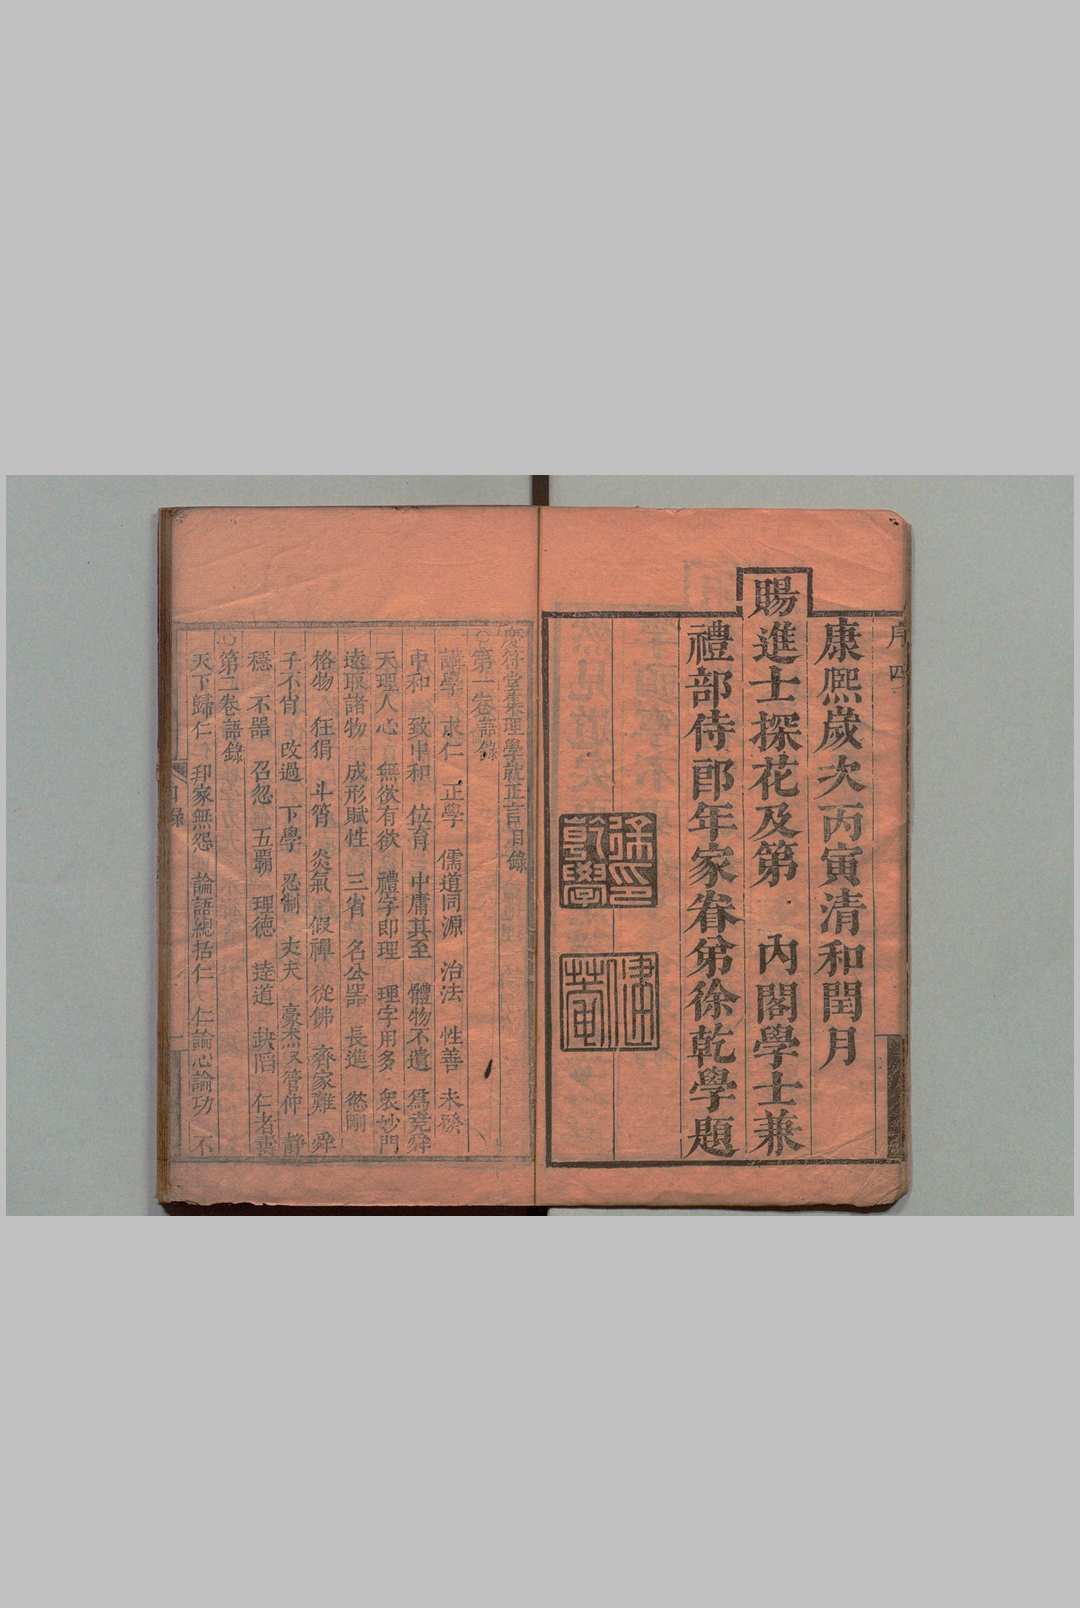 序 四
康熙歲次丙寅清和閏月
賜進士探花及第 內閣學士兼
禮部侍郎年家眷弟徐乾學題
徐印
乾學
健
菴
堂集理學就正言目錄
第一卷語錄
講學 求仁 正學 儒道同源 治法 性善 未發
中和 致中和 位育 中庸其至 體物不遺 為堯舜
天理人心 無欲有欲 禮字即理 理字用多 衆妙門
遠取諸物 成形賦性 三省 名公器 長進 慾剛
格物 狂狷 斗筲 炎氣 假禪 從佛 齊家難 舜
子不肖 改過 下學 忍制 丈夫 豪杰 管仲 靜
穩 不器 召怨 五霸 理德 達道 缺陷 仁者壽
第二卷語錄
天下歸仁 邦家無怨 論語總括仁 仁論心論功 不
目錄 一